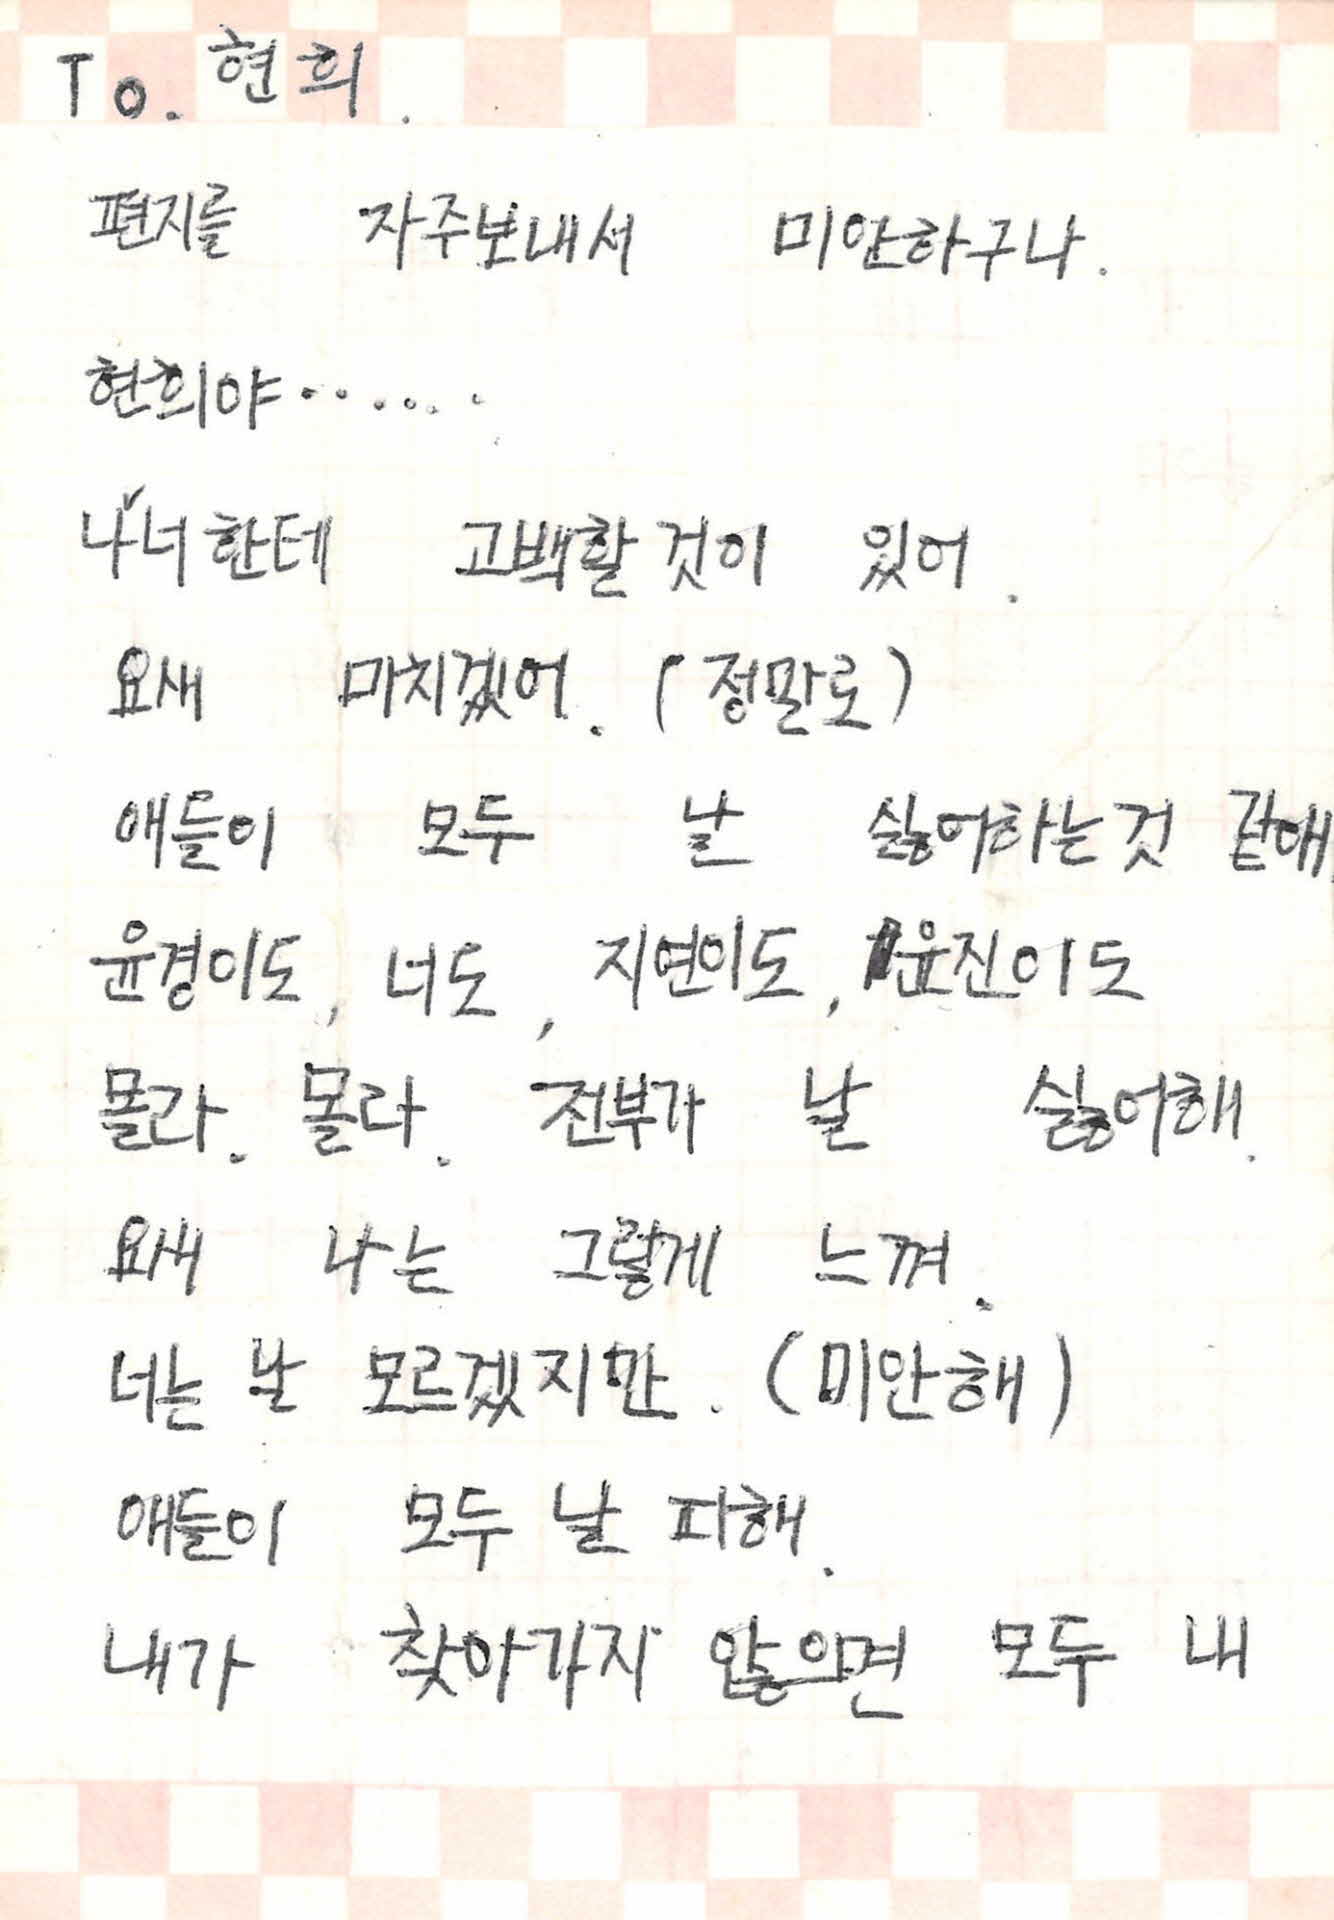 To. 현희.
편지를 자주보내서 미안하구나.
현희야‥‥‥
나 너한테 고백할것이 있어.
요새 마치겠어. (정말로)
애들이 모두 날 싫어하는것 같애.
윤경이도, 너도, 지연이도, 윤진이도
몰라. 몰라. 전부가 날 싫어해.
요새 나는 그렇게 느껴.
너는 날 모르겠지만. (미안해)
애들이 모두 날 피해.
내가 찾아가지 않으면 모두 내